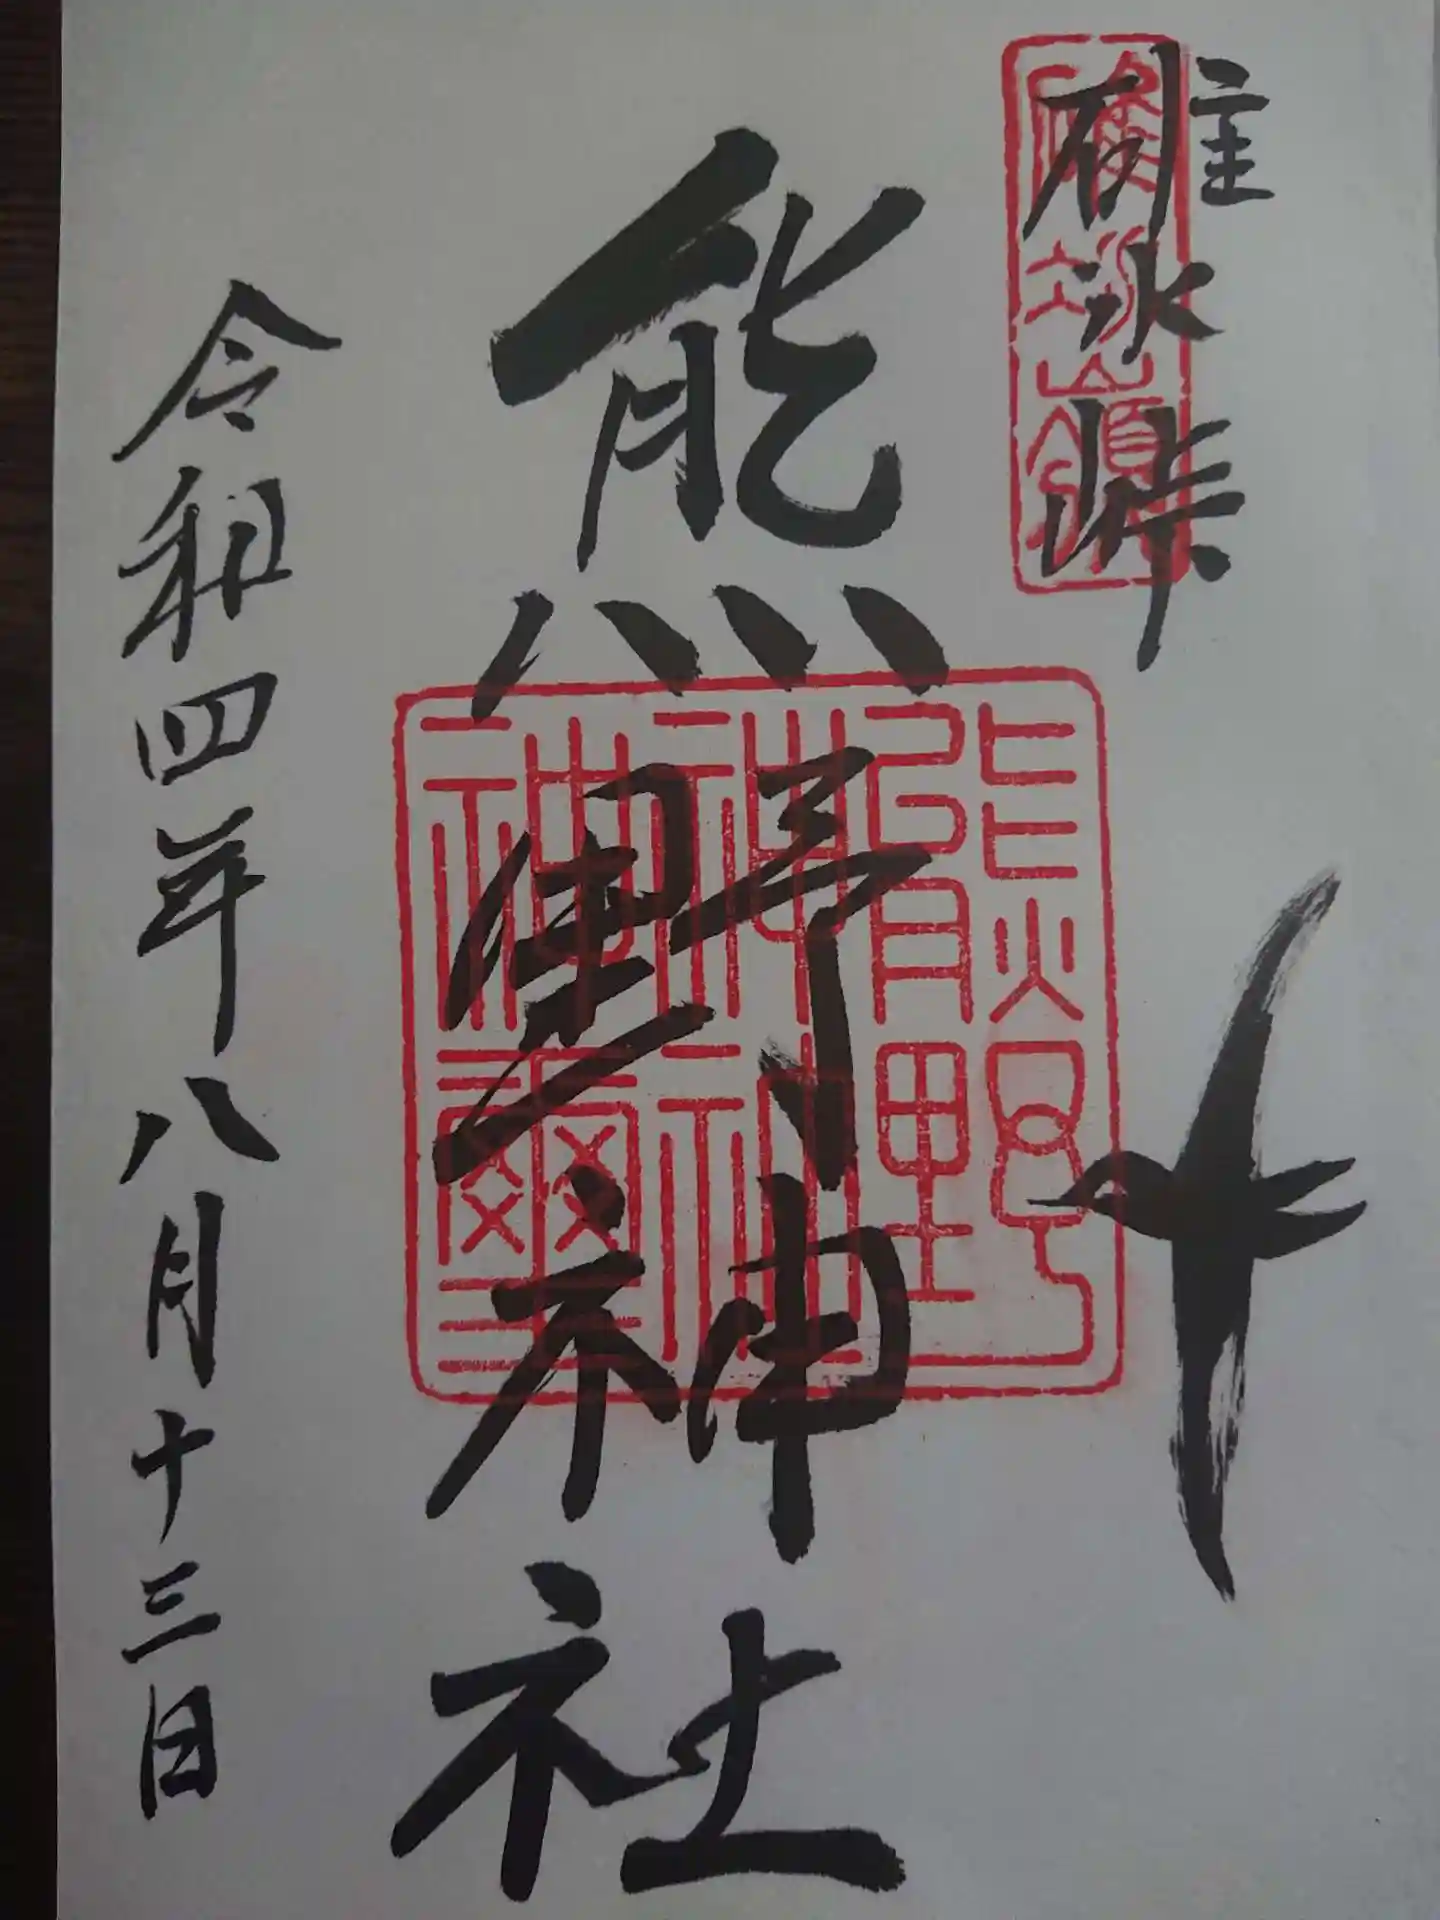 碓氷峠
熊野神社
熊野
神社
神璽
令和四年八月十三日